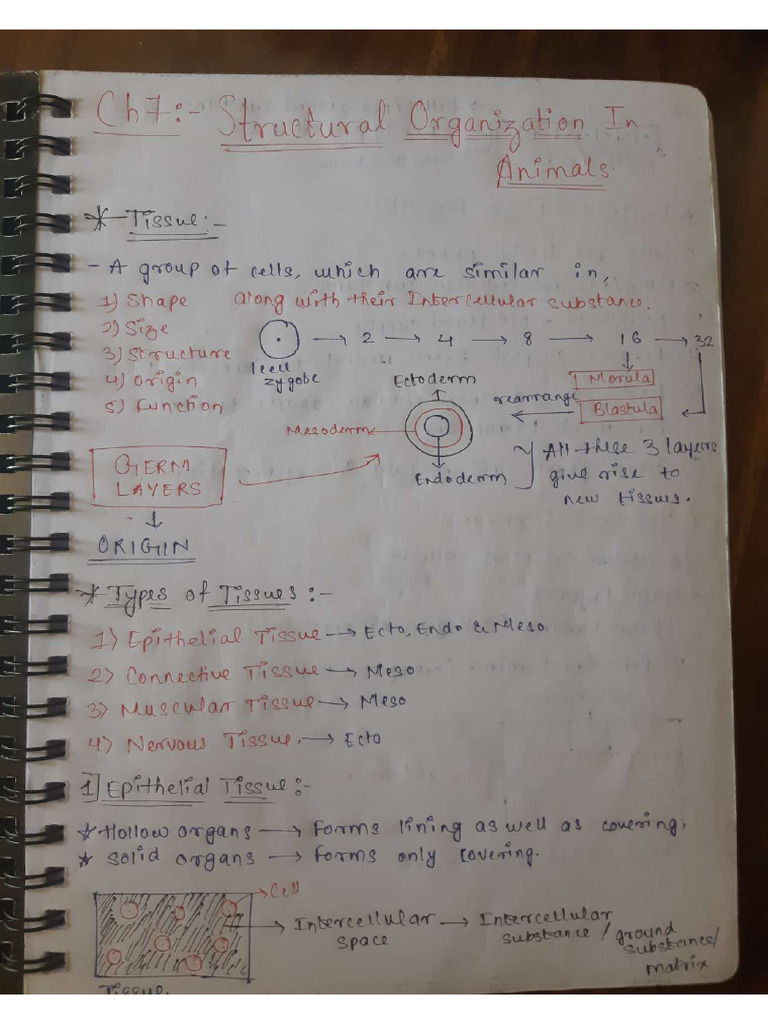 Ch7:- Structural Organization In
Animals
* Tissue:-
- A group of cells, which are similar in,
1) Shape along with their Intercellular substance.
2) Size
3) Structure
4) Origin
5) Function
1 cell zygobe → 2 → 4 → 8 → 16 → 32
Morula
Blastula
rearrange
Ectoderm
Mesoderm
Endoderm
All these 3 layers
give rise to
new tissues.
GERM
LAYERS
↓
ORIGIN
* Types of Tissues:-
1) Epithelial Tissue → Ecto, Endo & Meso
2) Connective Tissue → Meso
3) Muscular Tissue → Meso
4) Nervous Tissue. → Ecto
1] Epithelial Tissue:-
* Hollow organs → Forms lining as well as covering.
* Solid organs → Forms only covering.
Cell
Intercellular space → Intercellular substance / ground substance / matrix
Tissue.